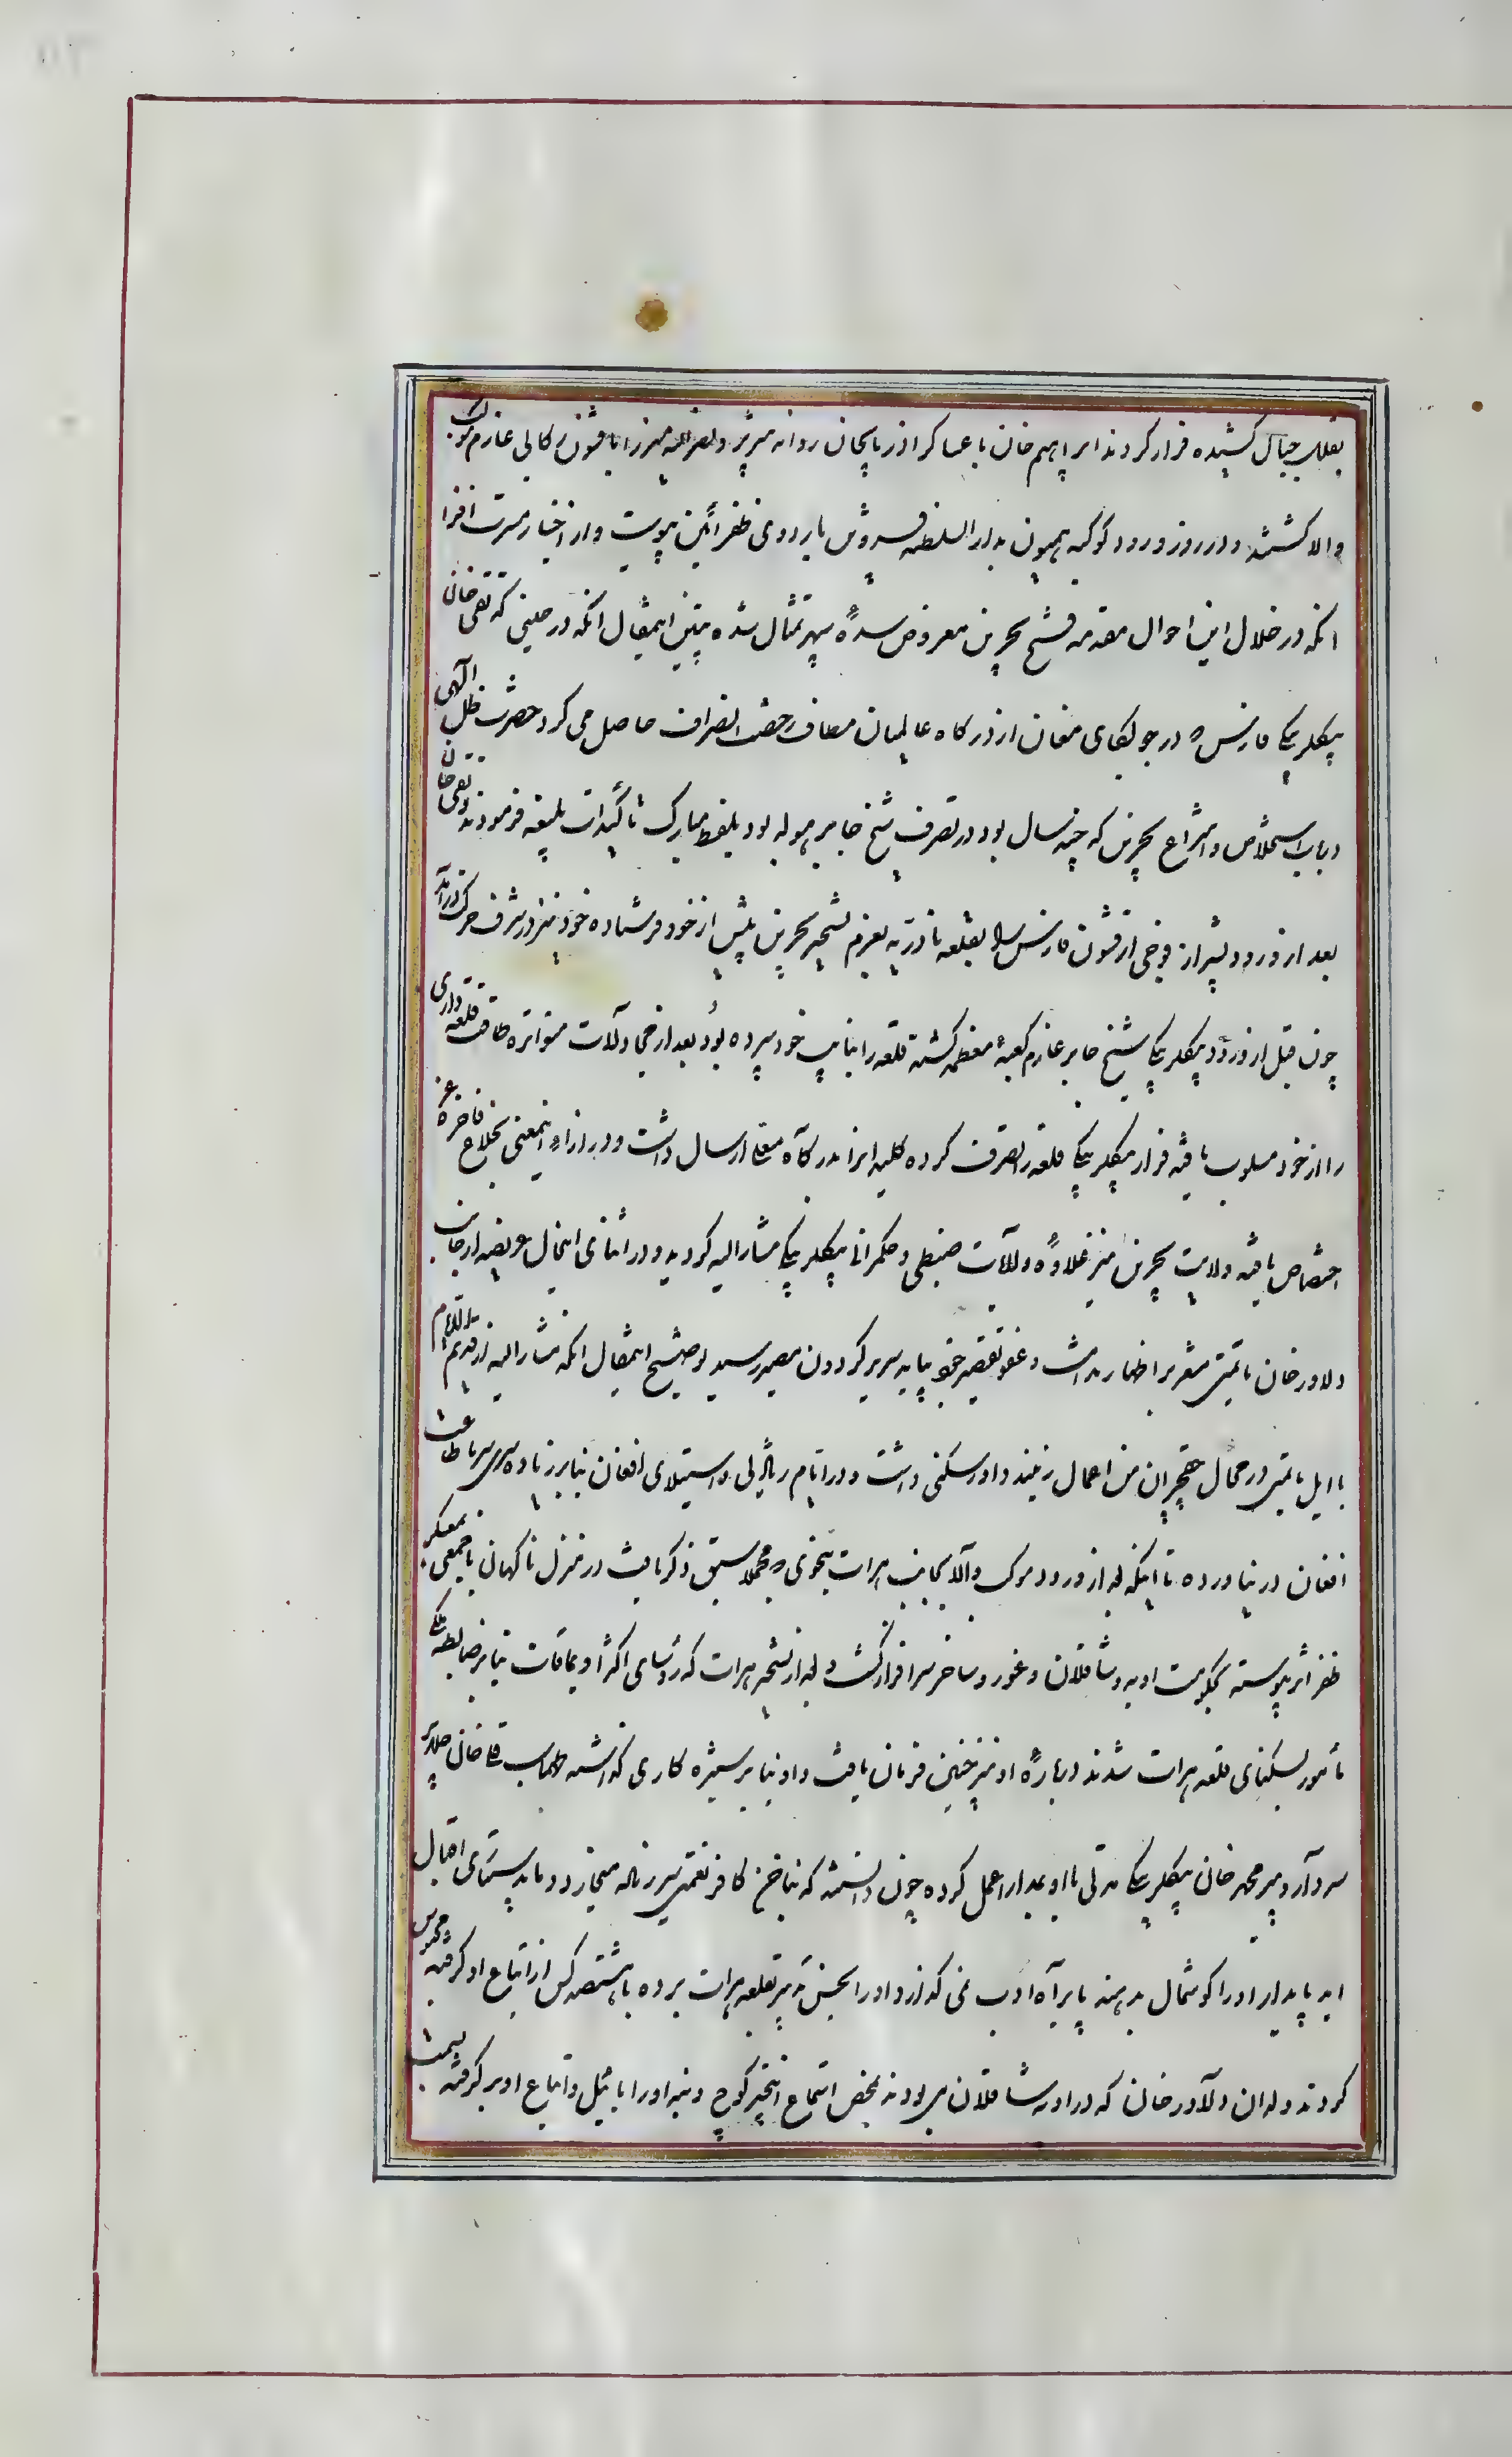 بقلل جبال کشیده فرار کردند ابراهیم خان با عساکر آذربایجان روانه تبریز و نصرالله میرزا با قشون رکابی عازم موکب
والا گشتند و در روز ورود کوکبه همیون بدار السلطنه قزوین باردوی ظفر آئین پیوست و از اخبار مسرت افزا
انکه در خلال این احوال مقدمه فتح بحرین معروض سدهٔ سپهر تمثال شده تبیین اینمقال انکه در حینی که تقی خان
بیکلر بیکی فارس در جولکای مغان از درکاه عالمیان مطاف رخصت انصراف حاصل می کرد حضرت ظل الهی
در باب استخلاص و انتزاع بحرین که چند سال بود در تصرف شیخ جابر هوله بود بلفظ مبارک تأکیدات بلیغه فرمودند و تقی خان
بعد از ورود بشیراز فوجی از قشون فارس را بقلعه نادریه بعزم تسخیر بحرین پیش از خود فرستاده خود نیز در شرف حرکت درآمد
چون قبل از ورود بیکلر بیکی شیخ جابر عازم کعبهٔ معظمه کشته قلعه را بنایب خود سپرده بود بعد از مجادلات متواتره طاقت قلعه داری
را از خود مسلوب یافته فرار بیکلر بیکی قلعه را تصرف کرده کلید انرا بدرکاه معلی ارسال داشت و در ازاء اینمعنی بخلاع فاخره عز
اختصاص یافته ولایت بحرین نیز علاوهٔ ولایات ضبطی و حکمرانی بیکلر بیکی مشارالیه کردید و در اثنای اینحال عریضه از جانب
دلاور خان تایمنی مشعر بر اظهار ندامت و عفو تقصیر خود بپایه سریر کردون مصیر رسید توضیح اینمقال انکه مشارالیه از قدیم الایام
با ایل تایمنی در محال چخچران من اعمال زمیند داور سکنی داشت و در ایام ابدالی و استیلای افغان بنا بر زیاده سری سر باطاعت
افغان در نیاورده تا اینکه بعد از ورود موکب والا بجانب هرات بنحوی که مجملا سبق ذکر یافت در منزل ناکهان با جمعی بمعسکر
ظفر اثر پیوسته بحکومت اوبه و شافلان و غور و ساخر سرافراز کشت و بعد از تسخیر هرات که رؤسای اکثر اویماقات بنا بر ضابطه ملکی
مأمور بسکنای قلعه هرات شدند دربارهٔ او نیز چنین فرمان یافت و او بنا بر ستیزه کاری که داشت طهماسب قلی خان جلایر
سردار و پیر محمد خان بیکلر بیکی مدتی با او بمدارا عمل کرده چون دانستند که بناخن کافر نعمتی سر رناله میخارد و تا بدستهای اقبال
ابد پایدار او را کوشمال ندهند پا براه ادب نمی کذارد او را بحسن تدبیر بقلعه هرات برده با هشتصد کس از اتباع او کرفته محبوس
کردند و پسران دلاور خان که در اوبه شافلان می بودند بمحض استماع اینخبر کوچ و بنه او را با ایل و اتباع او برکرفته بسمت